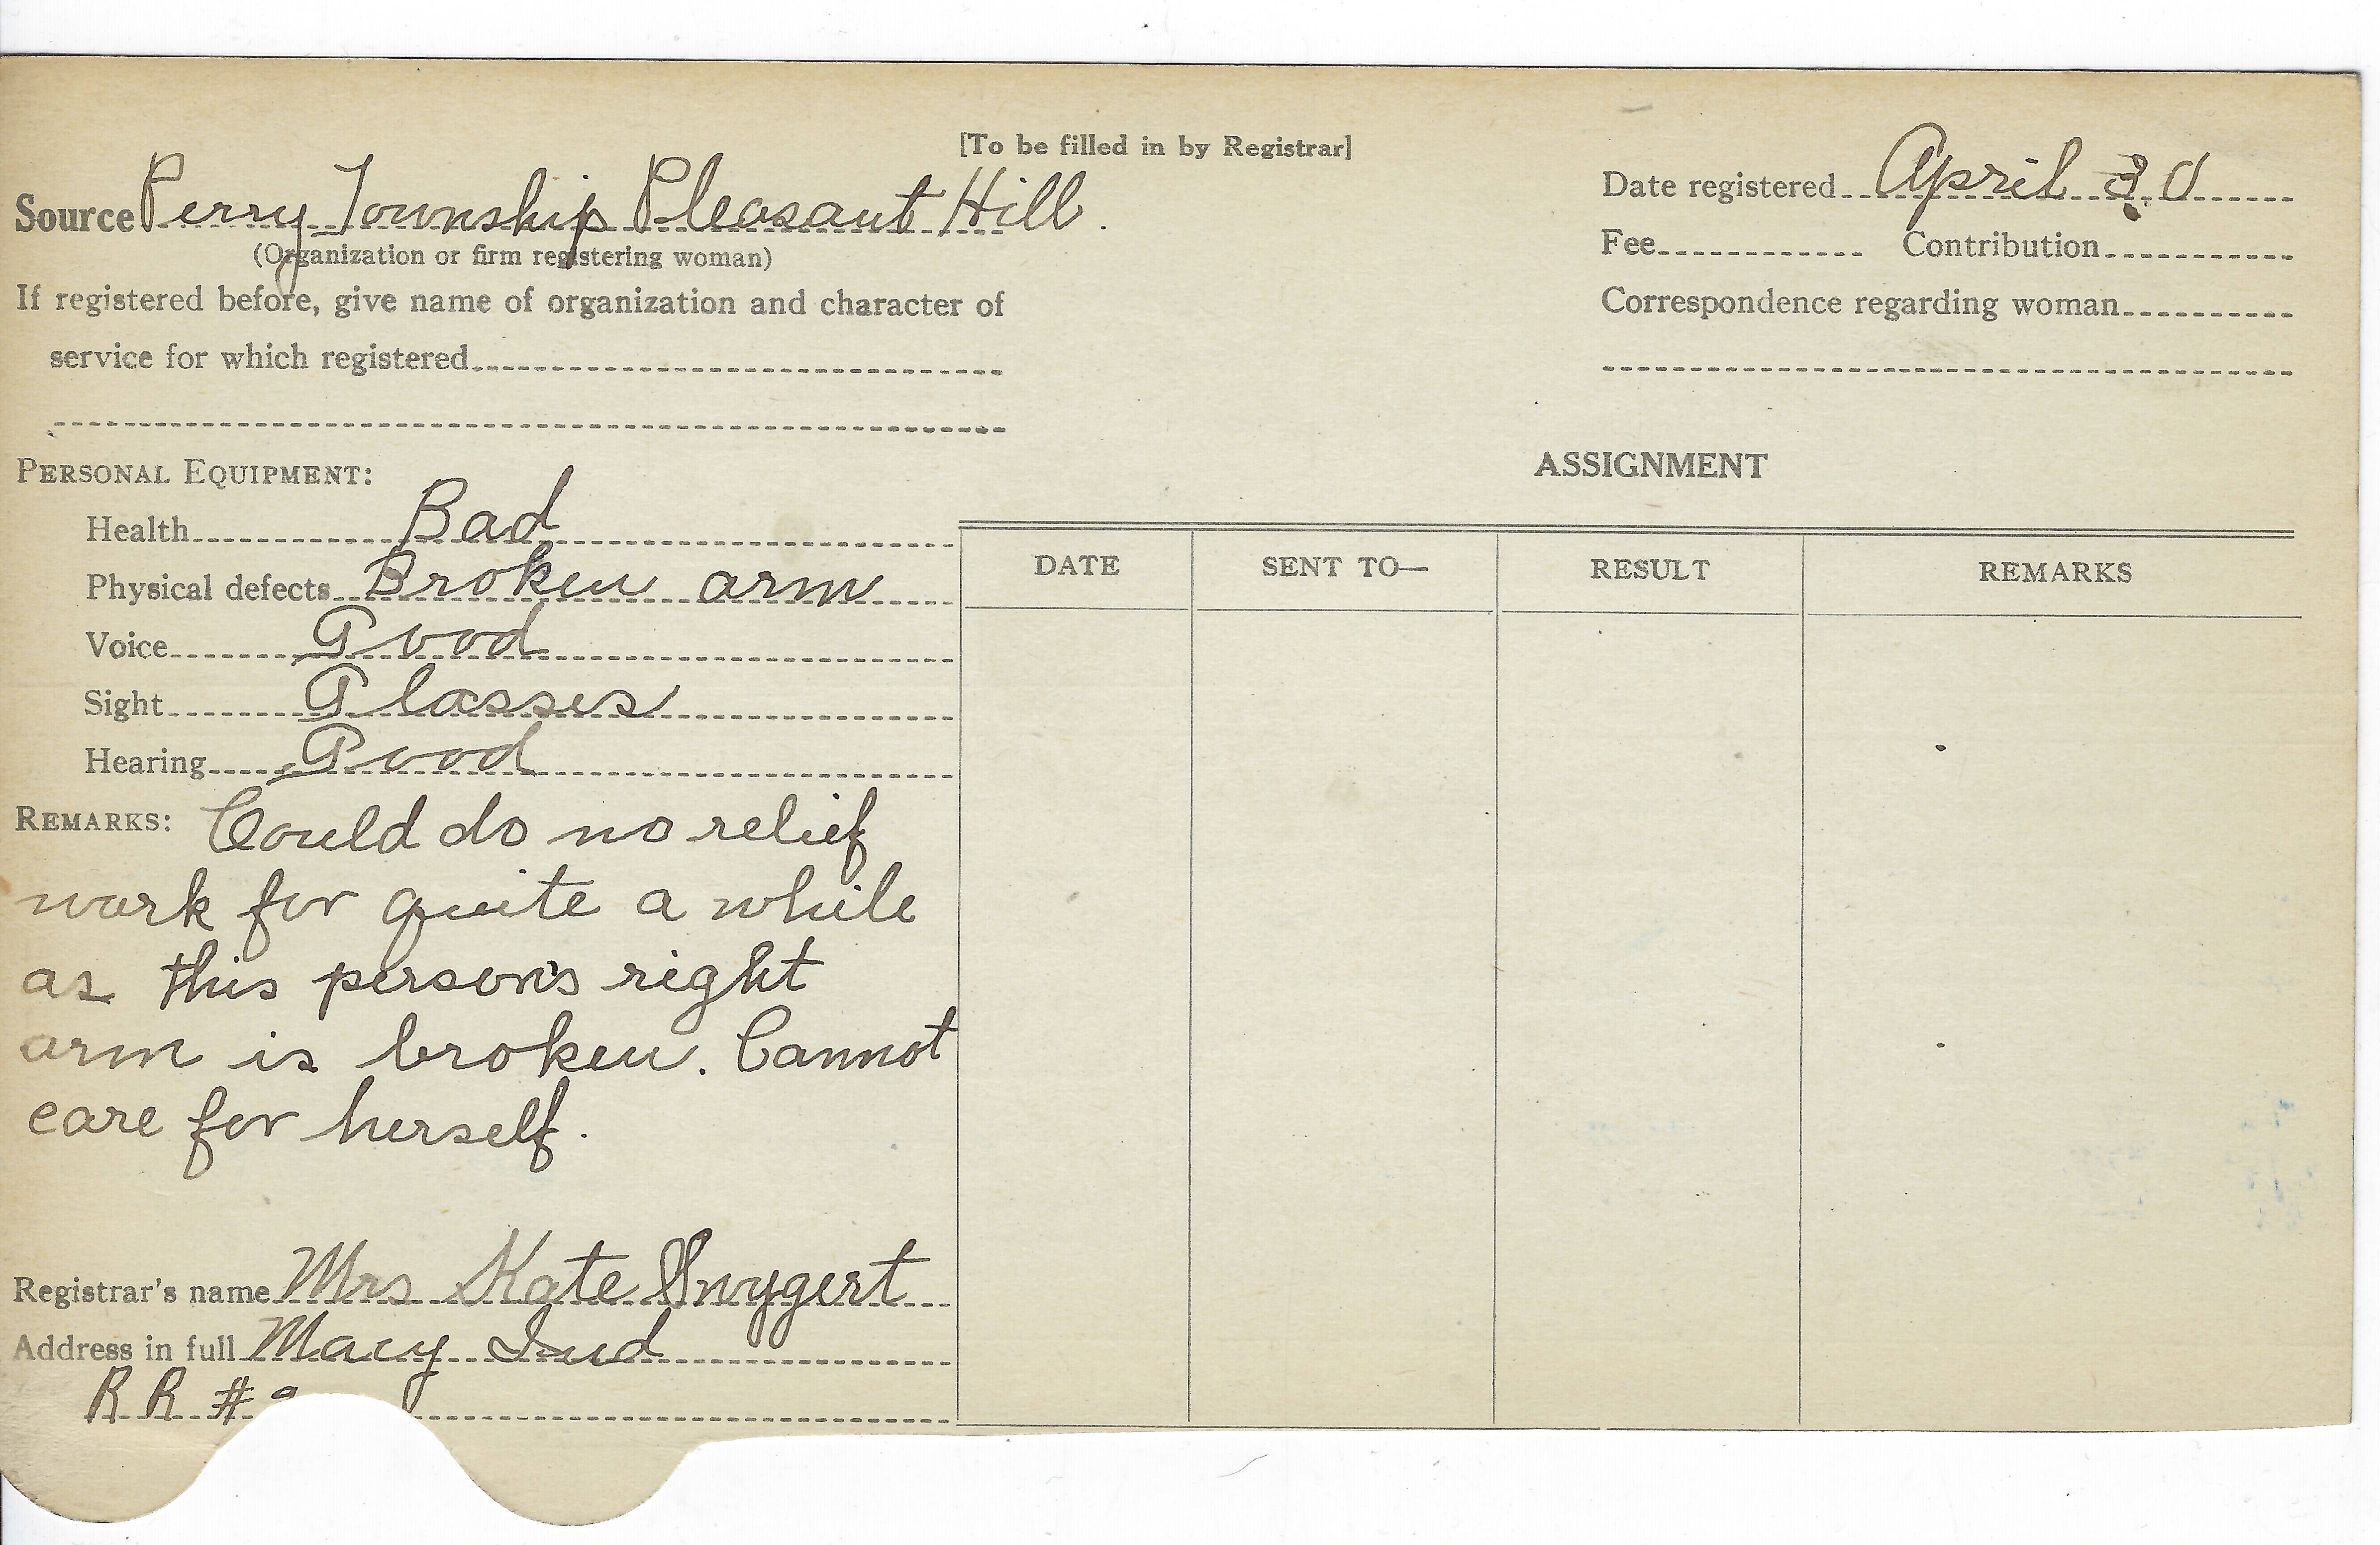 [To be filled in by Registrar]
Source Perry Township Pleasant Hill.
(Organization or firm registering woman)
If registered before, give name of organization and character of
service for which registered
Date registered April 30
Fee Contribution
Correspondence regarding woman
PERSONAL EQUIPMENT:
Health Bad
Physical defects Broken arm
Voice Good
Sight Glasses
Hearing Good
REMARKS: Could do no relief
work for quite a while
as this person's right
arm is broken. Cannot
care for herself.
Registrar's name Mrs Kate Swygert
Address in full Macy Ind
R R #
ASSIGNMENT
DATE SENT TO— RESULT REMARKS